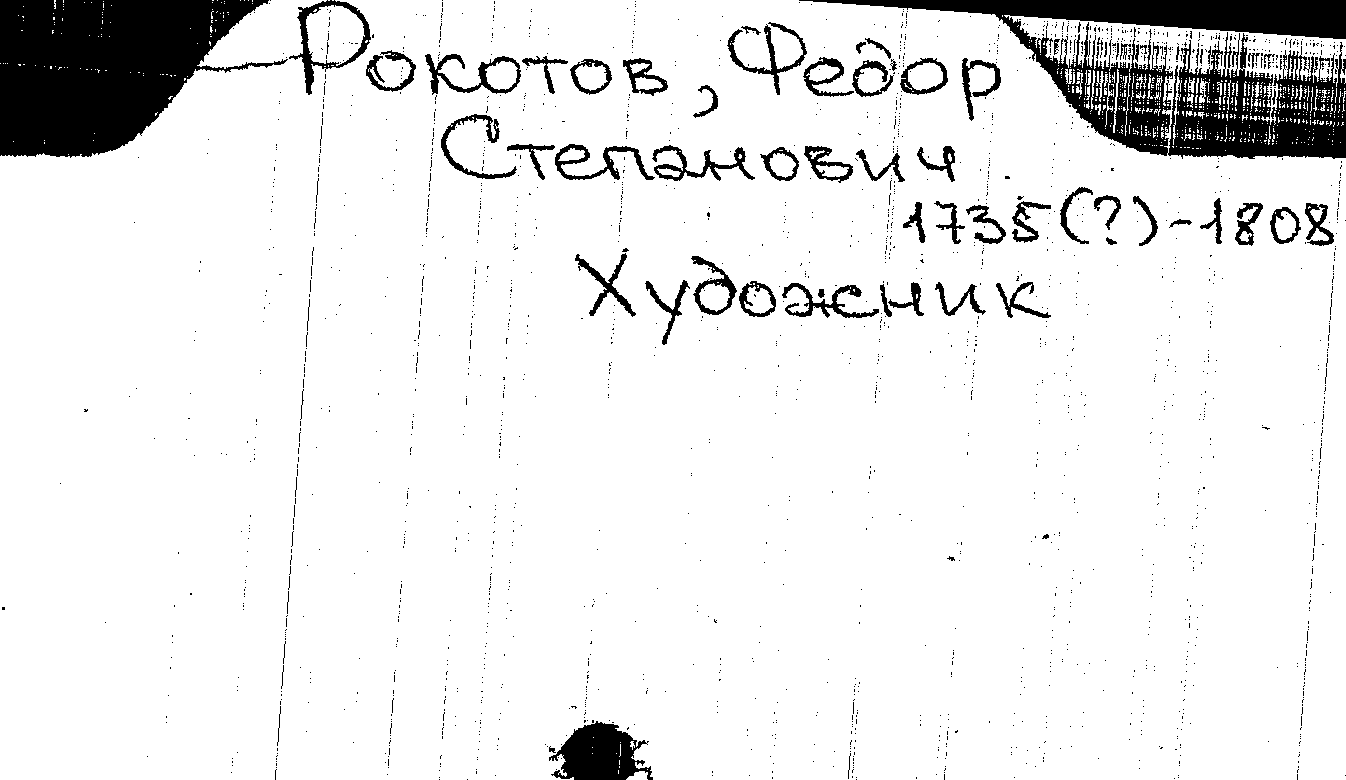 Рокотов, Федор
Степанович
1735(?)-1808
Художник